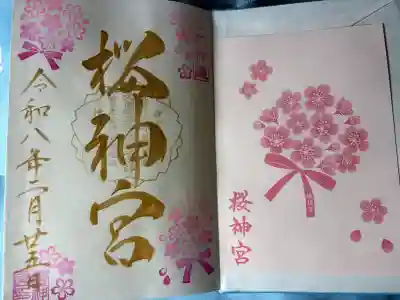 桜神宮
令和八年二月廿五日
桜神宮